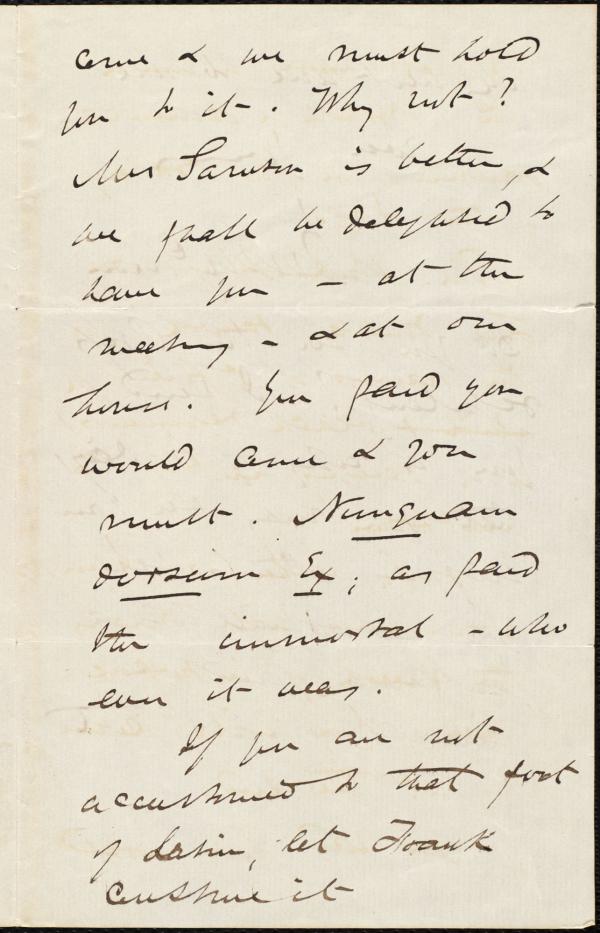 come & we must hold
you to it. Why not?
Mrs Samson is better, &
we shall be delighted to
have you - at the
meeting - & at our
house. You said you
would come & you
must. Nunquam
dorsum Ex; as said
the immortal - who
ever it was.
If you are not
accustomed to that sort
of Latin, let Frank
construe it